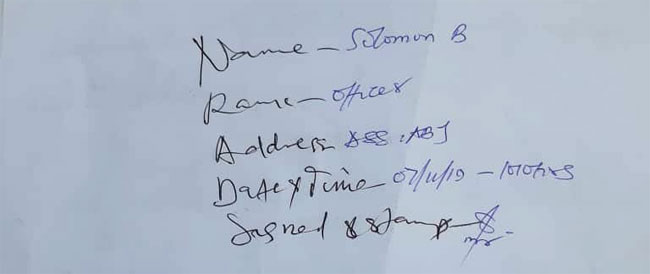 Name - Solomon B
Rank - officer
Address DSS. ABJ
Date & Time - 07/11/19 - 1010hrs
Signed & stamp